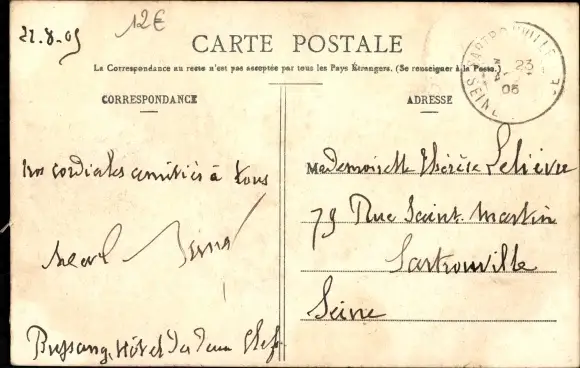 22-8-05
12€
CARTE POSTALE
La Correspondance au recto n'est pas acceptée par tous les Pays Étrangers. (Se renseigner à la Poste.)
SARTROUVILLE
23
05
SEINE
CORRESPONDANCE
mes cordiales amitiés à tous
Bussang, Hôtel des deux Clefs
ADRESSE
Mademoiselle Thérèse Lelièvre
79 Rue Saint-Martin
Sartrouville
Seine